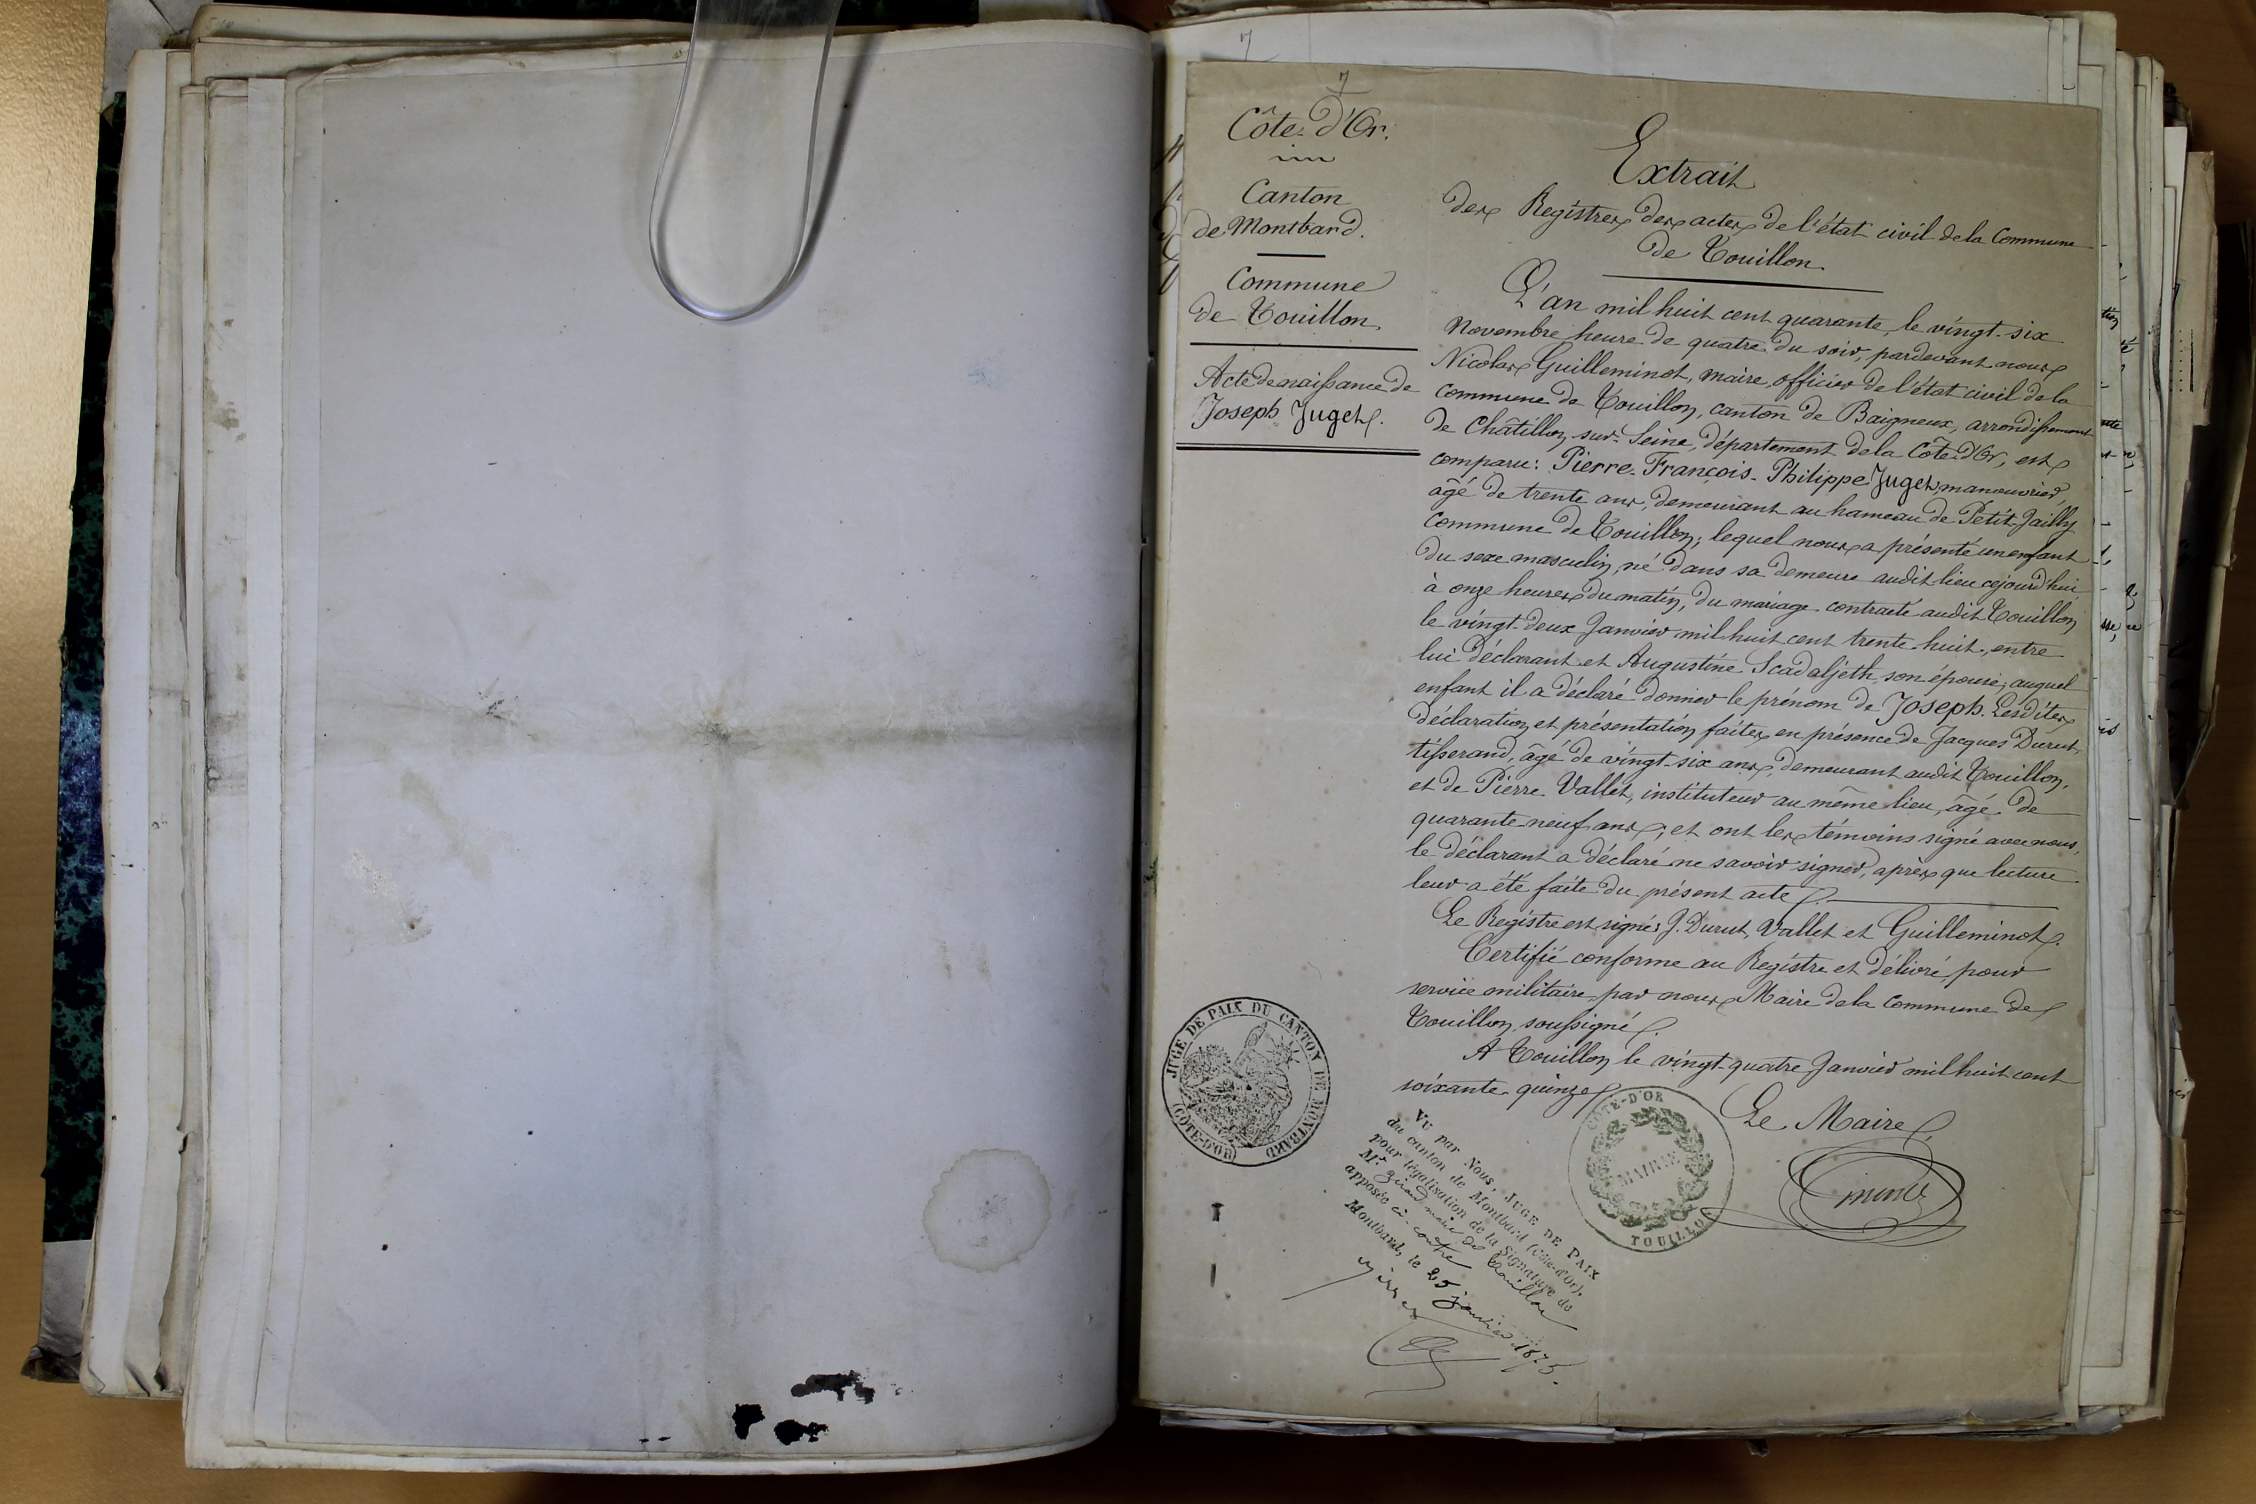 7
7
Côte-d'Or.
Canton
de Montbard.
Commune
de Touillon.
Acte de naissance de
Joseph Juget.
Extrait
des Registres des actes de l'état civil de la Commune
de Touillon.
L'an mil huit cent quarante, le vingt-six
Novembre heure de quatre du soir, pardevant nous
Nicolas Guilleminot, maire, officier de l'état civil de la
commune de Touillon, canton de Baigneux, arrondissement
de Châtillon-sur-Seine, département de la Côte-d'Or, est
comparu: Pierre-François-Philippe Juget, manouvrier
âgé de trente ans, demeurant au hameau de Petit-Jailly
commune de Touillon; lequel nous a présenté un enfant
du sexe masculin, né dans sa demeure audit lieu cejourd'hui
à onze heures du matin, du mariage contracté audit Touillon
le vingt-deux Janvier mil huit cent trente-huit, entre
lui déclarant et Augustine Scadaljeth, son épouse; auquel
enfant il a déclaré donner le prénom de Joseph. Lesdites
déclaration et présentation faites en présence de Jacques Durut,
tisserand, âgé de vingt-six ans, demeurant audit Touillon,
et de Pierre Vallet, instituteur au même lieu, âgé de
quarante-neuf ans; et ont les témoins signé avec nous,
le déclarant a déclaré ne savoir signer, après que lecture
leur a été faite du présent acte.
Le Registre est signé: J. Durut, Vallet et Guilleminot.
Certifié conforme au Registre et délivré pour
service militaire par nous Maire de la Commune de
Touillon, soussigné.
A Touillon le vingt-quatre Janvier mil huit cent
soixante-quinze.
Le Maire,
JUGE DE PAIX DU CANTON DE MONTBARD
(COTE-D'OR)
COTE-D'OR
MAIRIE
TOUILLON
Vu par Nous, JUGE DE PAIX
du canton de Montbard (Côte-d'Or),
pour légalisation de la Signature de
Mr maire de Touillon
apposée ci-contre
Montbard, le 25 janvier 1875.